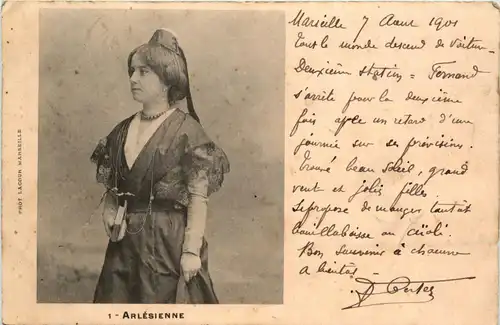 Marseille 7 Aout 1901
Tout le monde descend de voiture
Deuxième station = Fernand
s'arrète pour la deuxième
fois après un retard d'une
journée sur ses prévisions.
Trouvé beau soleil, grand
vent et jolies filles
Se propose de manger tantôt
bouillabaisse ou aïoli.
Bon souvenir à chacune
A bientôt
PHOT LACOUR MARSEILLE
1 - ARLÉSIENNE